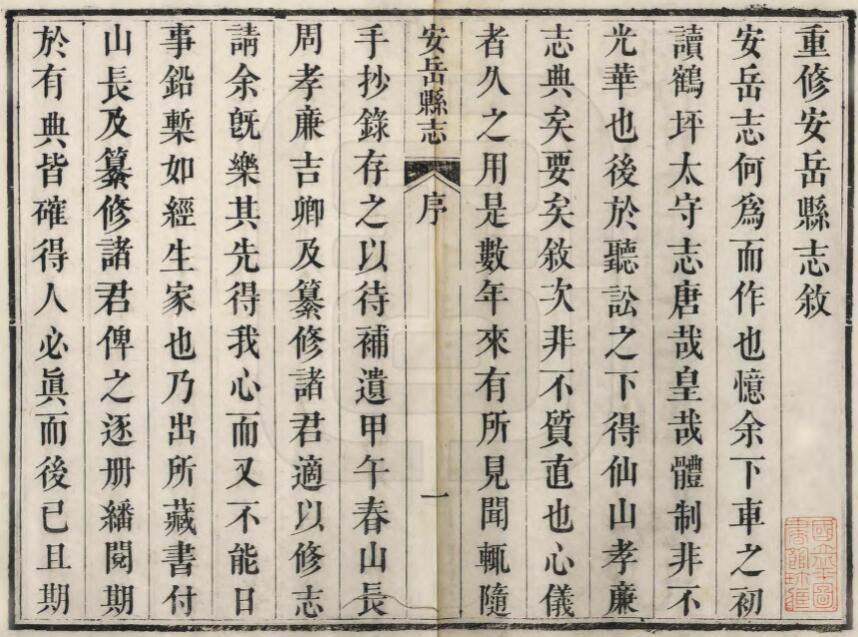 重修安岳縣志敘
安岳志何爲而作也憶余下車之初
讀鶴坪太守志唐哉皇哉體制非不
光華也後於聽訟之下得仙山孝廉
志典矣要矣敘次非不質直也心儀
者久之用是數年來有所見聞輒隨
安岳縣志 序 一
手抄錄存之以待補遺甲午春山長
周孝廉吉卿及纂修諸君適以修志
請余旣樂其先得我心而又不能日
事鉛槧如經生家也乃出所藏書付
山長及纂修諸君俾之逐册繙閱期
於有典皆確得人必眞而後已且期